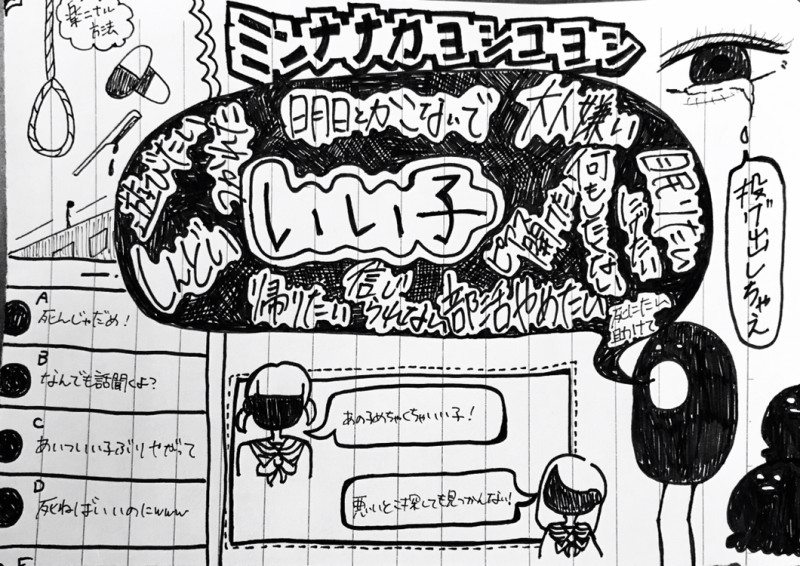 楽ニナル
方法
ミンナナカヨシコヨシ
明日とかこないで
大人嫌い
遊びたい
いい子
ピアス開けたい
何もしたくない
にげたい
眠りたい
しんどい
帰りたい
信じ
られない
部活やめたい
死にたい
助けて
投げ出しちゃえ
A
死んじゃだめ!
B
なんでも話聞くよ?
C
あいついい子ぶりやがって
D
死ねばいいのにwww
E
あの子めちゃくちゃいい子!
悪いとこ探しても見つかんない!